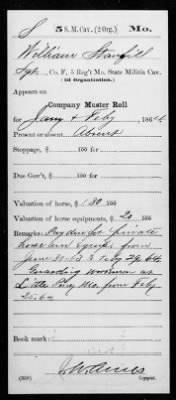 S 5 S.M. Cav. (2 Org.) Mo.
William Stanfill
Sgt, Co. F, 5 Reg't Mo. State Militia Cav.
(2d Organization.)
Appears on
Company Muster Roll
for Jany & Feby, 1864
Present or absent Absent
Stoppage, $ 100
Due Gov't, $ 100
Valuation of horse, $ 130 100
Valuation of horse equipments, $ 20 100
Remarks: Pay due for private
horse and equip's from
June 30 63 to Feby 29, 64
Guarding woodmen at
Little Piney Mo. from Feby
Book mark:
(358)
Copyist.